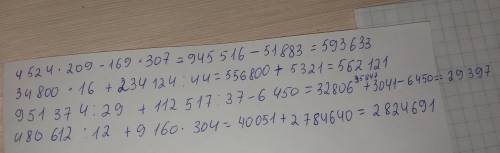 4524 · 209 - 169 · 307 = 945516 - 51883 = 593633
34800 · 16 + 234124 : 44 = 556800 + 5321 = 562121
951374 : 29 + 112517 : 37 - 6450 = 32806 35847 + 3041 - 6450 = 29397
480612 : 12 + 9160 · 304 = 40051 + 2784640 = 2824691